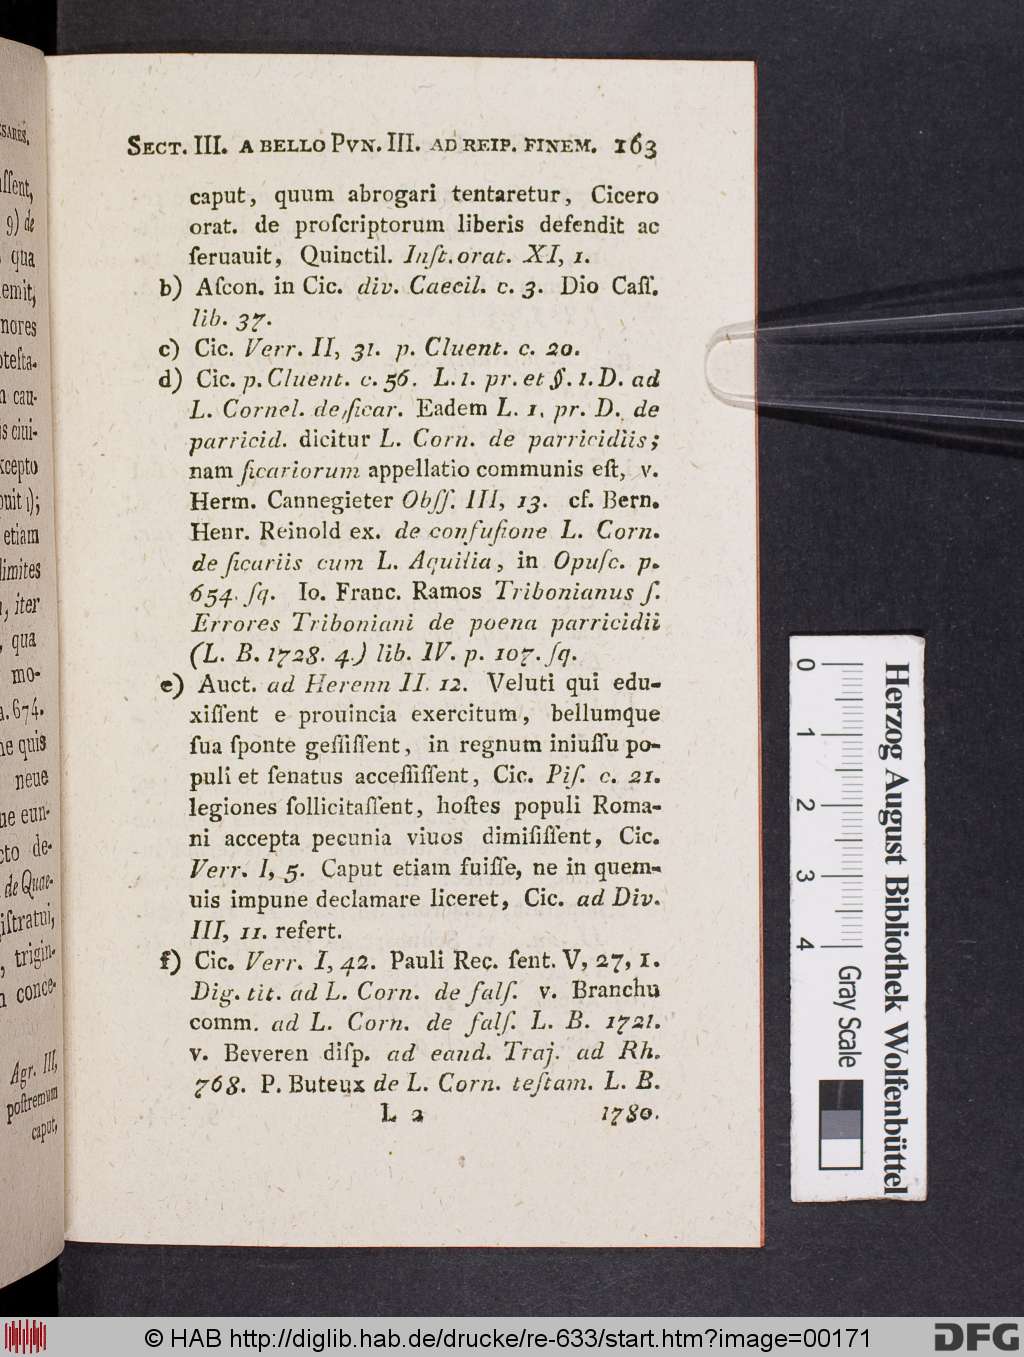 SECT. III. A BELLO PVN. III. AD REIP. FINEM. 163
caput, quum abrogari tentaretur, Cicero
orat. de proſcriptorum liberis defendit ac
ſeruauit, Quinctil. Inſt. orat. XI, 1.
b) Aſcon. in Cic. div. Caecil. c. 3. Dio Caſſ.
lib. 37.
c) Cic. Verr. II, 31. p. Cluent. c. 20.
d) Cic. p. Cluent. c. 56. L. 1. pr. et §. 1. D. ad
L. Cornel. de ſicar. Eadem L. 1. pr. D. de
parricid. dicitur L. Corn. de parricidiis;
nam ſicariorum appellatio communis eſt, v.
Herm. Cannegieter Obſſ. III, 13. cf. Bern.
Henr. Reinold ex. de confuſione L. Corn.
de ſicariis cum L. Aquilia, in Opuſc. p.
654. ſq. Io. Franc. Ramos Tribonianus ſ.
Errores Triboniani de poena parricidii
(L. B. 1728. 4.) lib. IV. p. 107. ſq.
e) Auct. ad Herenn II. 12. Veluti qui edu-
xiſſent e prouincia exercitum, bellumque
ſua ſponte geſſiſſent, in regnum iniuſſu po-
puli et ſenatus acceſſiſſent, Cic. Piſ. c. 21.
legiones ſollicitaſſent, hoſtes populi Roma-
ni accepta pecunia viuos dimiſiſſent, Cic.
Verr. I, 5. Caput etiam fuiſſe, ne in quem-
uis impune declamare liceret, Cic. ad Div.
III, 11. refert.
f) Cic. Verr. I, 42. Pauli Rec. ſent. V, 27, 1.
Dig. tit. ad L. Corn. de falſ. v. Branchu
comm. ad L. Corn. de falſ. L. B. 1721.
v. Beveren diſp. ad eand. Traj. ad Rh.
768. P. Buteux de L. Corn. teſtam. L. B.
L 2 1780.
SARES.
ſſent,
9) de
qua
emit,
nores
oteſta-
cau-
is ciui-
xcepto
ouit 1);
etiam
limites
iter
qua
mo-
a. 674.
ne quis
neue
ue eun-
cto de-
de Quae-
iſtratui,
trigin-
conce-
Agr. III,
poſtremum
caput,
Herzog August Bibliothek Wolfenbüttel
0 1 2 3 4
Gray Scale
© HAB http://diglib.hab.de/drucke/re-633/start.htm?image=00171
DFG